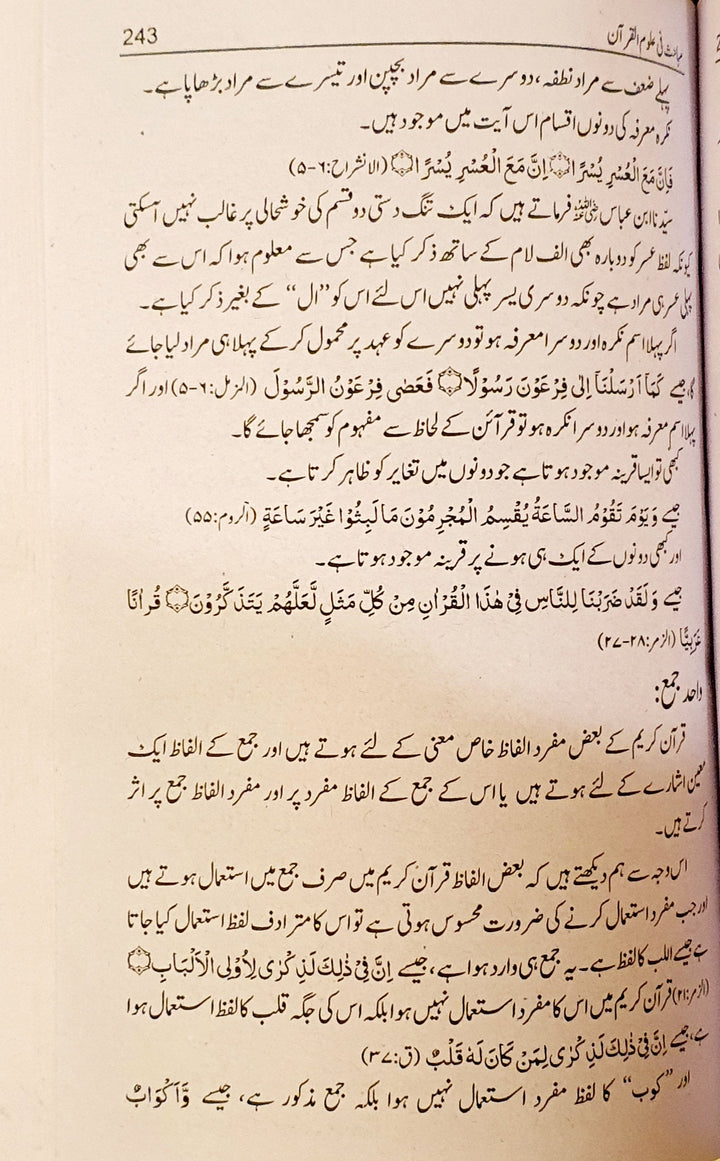 243 مباحث فی علوم القرآن
پہلے ضعف سے مراد نطفہ، دوسرے سے مراد بچپن اور تیسرے سے مراد بڑھاپا ہے۔
نکرہ معرفہ کی دونوں اقسام اس آیت میں موجود ہیں۔
فَاِنَّ مَعَ الْعُسْرِ يُسْرًا ۝ اِنَّ مَعَ الْعُسْرِ يُسْرًا ۝ (الانشراح:۶-۵)
سیّدنا ابن عباس رضی اللہ عنہ فرماتے ہیں کہ ایک تنگ دستی دو قسم کی خوشحالی پر غالب نہیں آسکتی
کیونکہ لفظ عسر کو دوبارہ بھی الف لام کے ساتھ ذکر کیا ہے جس سے معلوم ہوا کہ اس سے بھی
پہلی عسر ہی مراد ہے چونکہ دوسری یسر پہلی نہیں اس لئے اس کو ”ال“ کے بغیر ذکر کیا ہے۔
اگر پہلا اسم نکرہ اور دوسرا معرفہ ہو تو دوسرے کو عہد پر محمول کر کے پہلا ہی مراد لیا جائے
گا، جیسے كَمَآ اَرْسَلْنَآ اِلٰى فِرْعَوْنَ رَسُوْلًا ۝ فَعَصٰى فِرْعَوْنُ الرَّسُوْلَ (المزمل:۶-۵) اور اگر
پہلا اسم معرفہ ہو اور دوسرا نکرہ ہو تو قرآئن کے لحاظ سے مفہوم کو سمجھا جائے گا۔
کبھی تو ایسا قرینہ موجود ہوتا ہے جو دونوں میں تغایر کو ظاہر کرتا ہے۔
جیسے وَيَوْمَ تَقُوْمُ السَّاعَةُ يُقْسِمُ الْمُجْرِمُوْنَ مَا لَبِثُوْا غَيْرَ سَاعَةٍ (الروم:۵۵)
اور کبھی دونوں کے ایک ہی ہونے پر قرینہ موجود ہوتا ہے۔
جیسے وَلَقَدْ ضَرَبْنَا لِلنَّاسِ فِيْ هٰذَا الْقُرْاٰنِ مِنْ كُلِّ مَثَلٍ لَّعَلَّهُمْ يَتَذَكَّرُوْنَ ۝ قُرْاٰنًا
عَرَبِيًّا (الزمر:۲۸-۲۷)
واحد جمع:
قرآن کریم کے بعض مفرد الفاظ خاص معنی کے لئے ہوتے ہیں اور جمع کے الفاظ ایک
معین اشارے کے لئے ہوتے ہیں یا اس کے جمع کے الفاظ مفرد پر اور مفرد الفاظ جمع پر اثر
کرتے ہیں۔
اس وجہ سے ہم دیکھتے ہیں کہ بعض الفاظ قرآن کریم میں صرف جمع میں استعمال ہوتے ہیں
اور جب مفرد استعمال کرنے کی ضرورت محسوس ہوتی ہے تو اس کا مترادف لفظ استعمال کیا جاتا
ہے جیسے اللب کا لفظ ہے۔ یہ جمع ہی وارد ہوا ہے، جیسے اِنَّ فِيْ ذٰلِكَ لَذِكْرٰى لِاُوْلِى الْاَلْبَابِ ۝
(الزمر:۲۱) قرآن کریم میں اس کا مفرد استعمال نہیں ہوا بلکہ اس کی جگہ قلب کا لفظ استعمال ہوا
ہے، جیسے اِنَّ فِيْ ذٰلِكَ لَذِكْرٰى لِمَنْ كَانَ لَهٗ قَلْبٌ (ق:۳۷)
اور ”کوب“ کا لفظ مفرد استعمال نہیں ہوا بلکہ جمع مذکور ہے، جیسے وَّاَكْوَابٌ